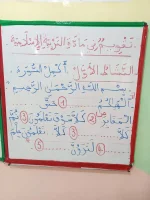 تقويم في مادة التربية الإسلامية
النشاط الأول: أكمل السورة:
بسم الله الرحمن الرحيم
ألهاكم ① حتى
المقابر ② كلا سوف تعلمون ③ ثم
كلا ④ كلا تعلمون علم
⑤ لترون ⑥